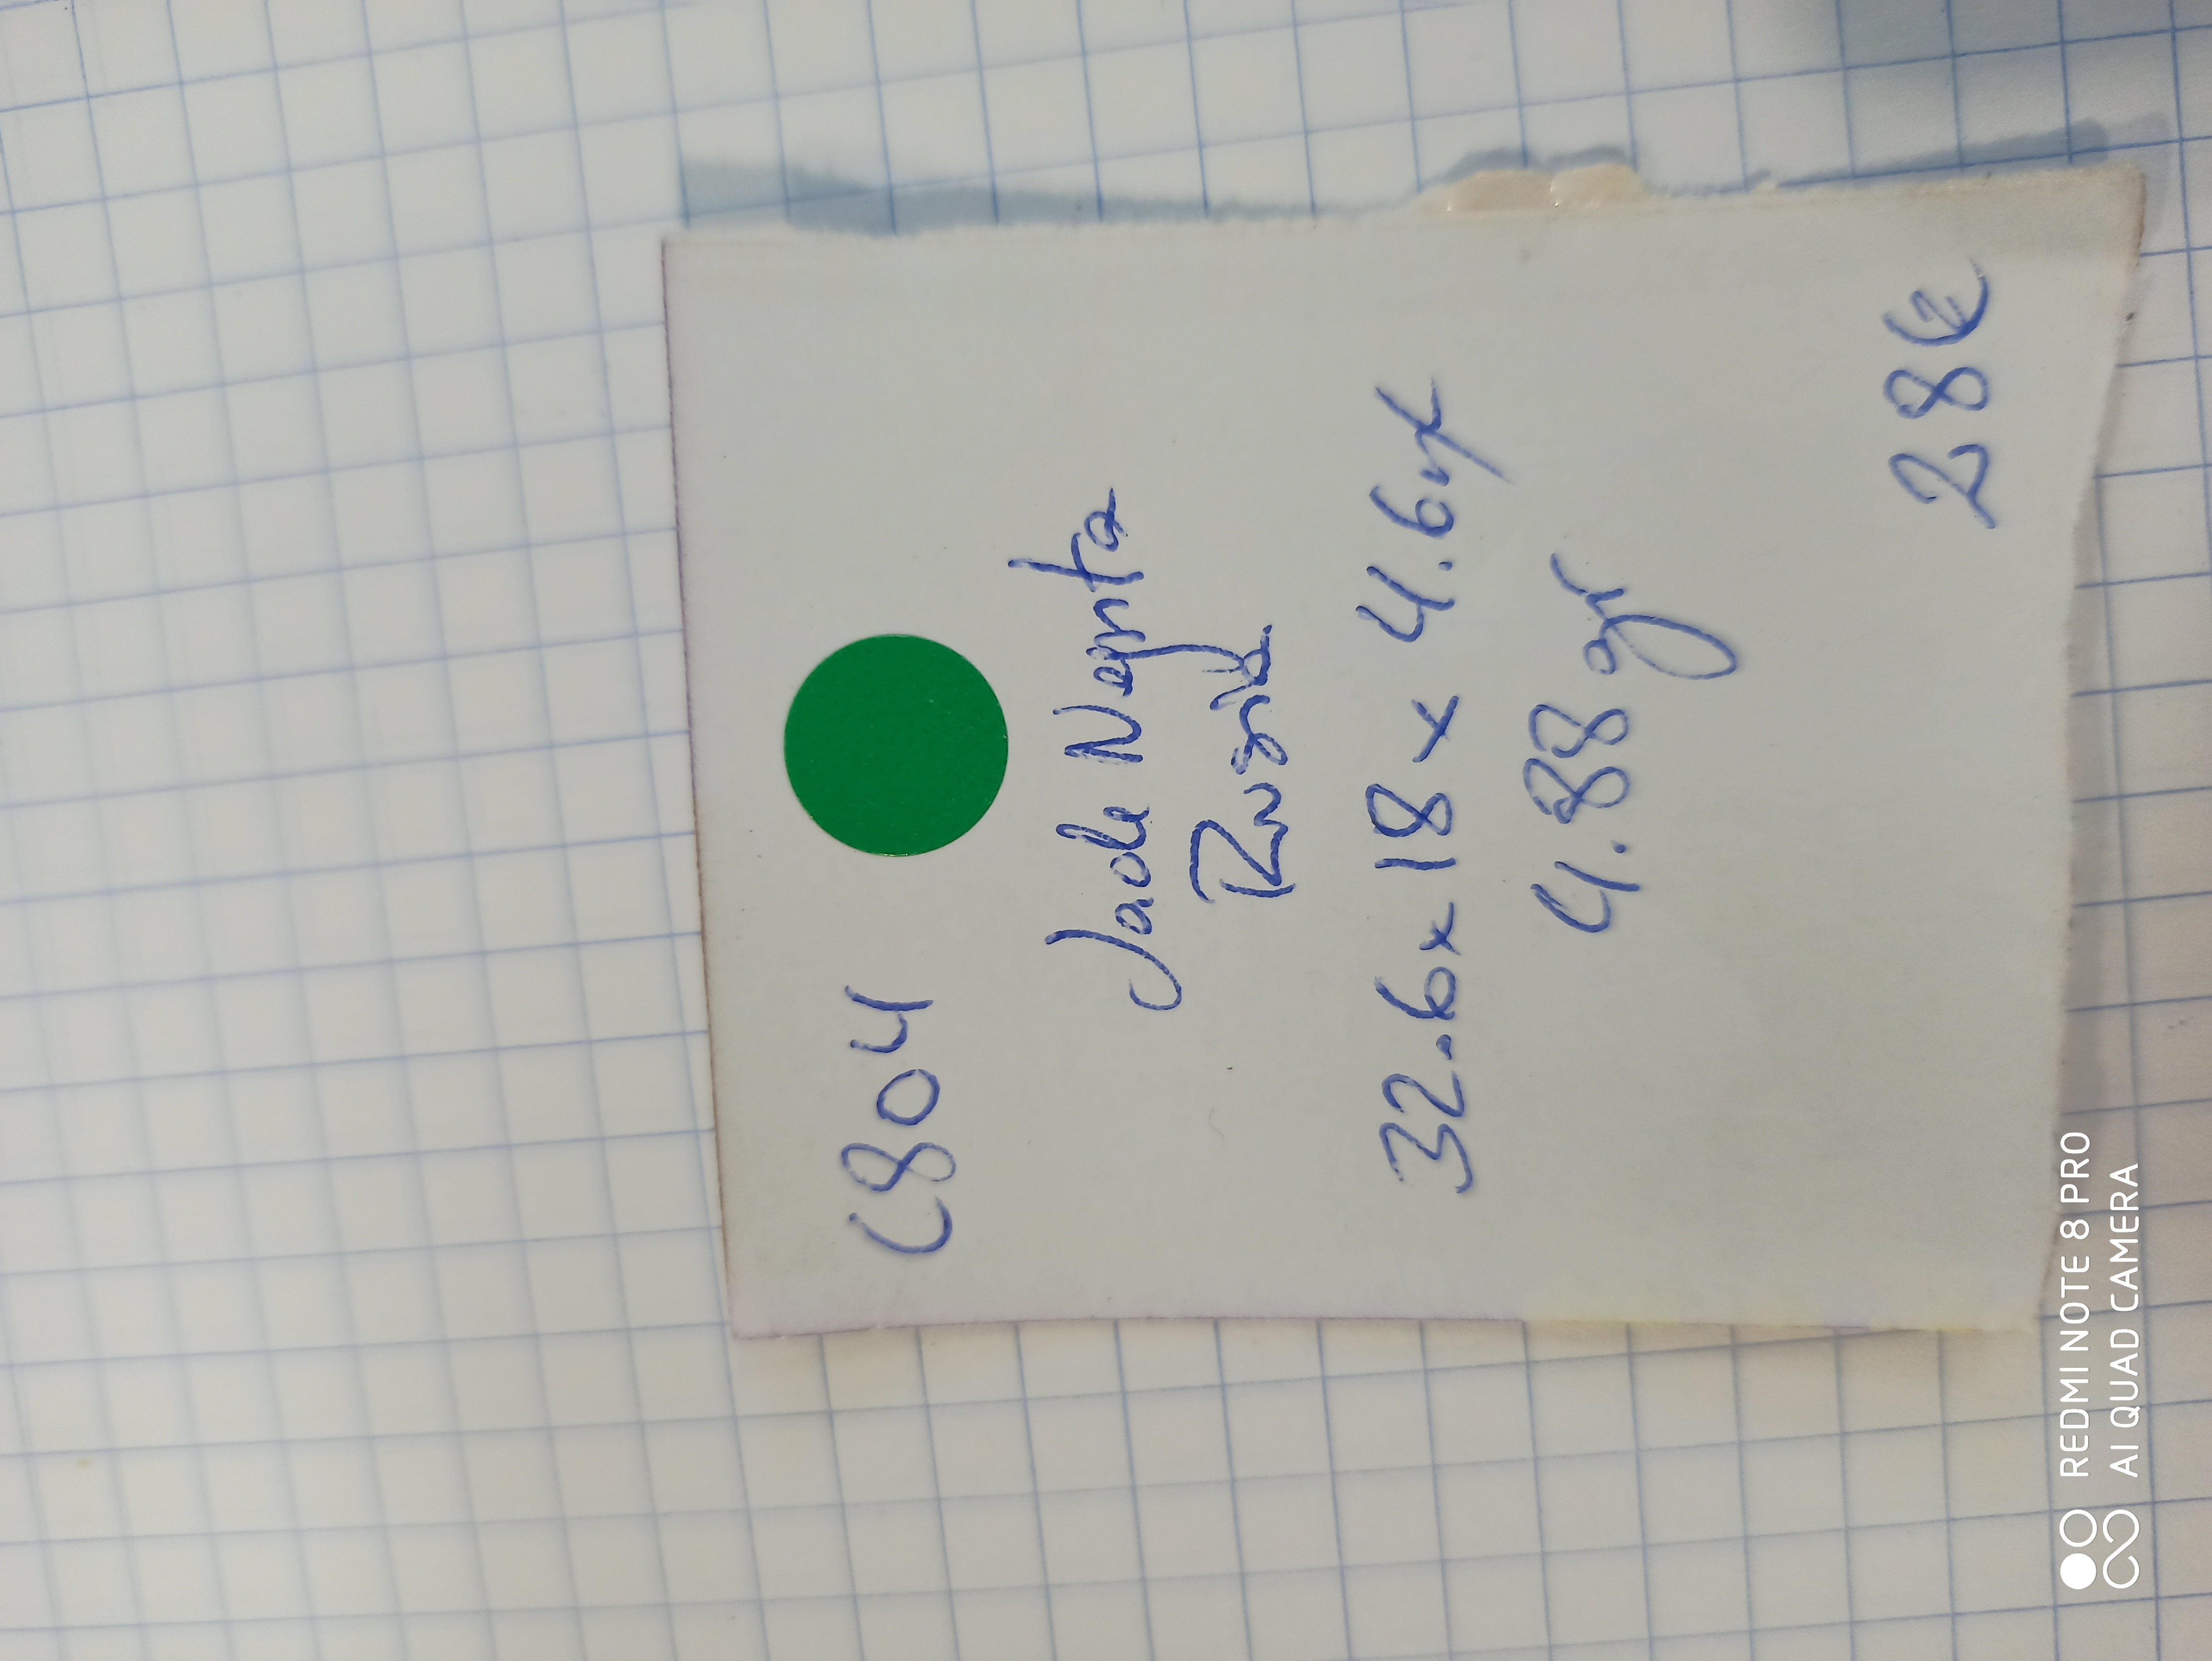 C804
Jade Nefrita
Rusia
32.6x18x4.6
4.88gr
28€
REDMI NOTE 8 PRO
AI QUAD CAMERA